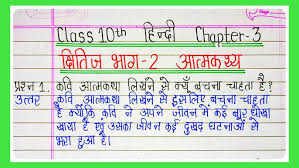 Class 10th हिन्दी Chapter-3
क्षितिज भाग-2 आत्मकथ्य
प्रश्न 1. कवि आत्मकथा लिखने से क्यूँ बचना चाहता है?
उत्तर कवि आत्मकथा लिखने से इसलिए बचना चाहता
है क्योंकि कवि ने अपने जीवन में कई बार धोखा
खाया है एवं उसका जीवन कई दुखद घटनाओं से
भरा हुआ है।